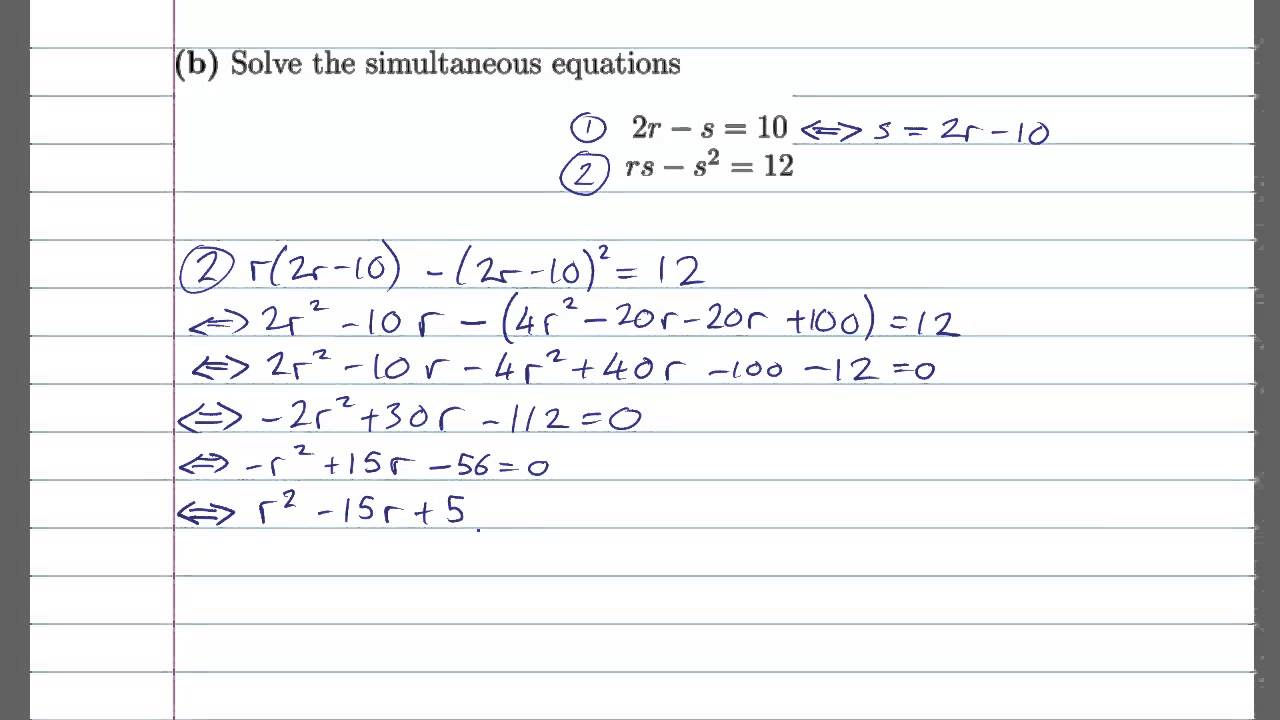 (b) Solve the simultaneous equations
① 2r − s = 10 ⟺ s = 2r − 10
② rs − s² = 12
② r(2r − 10) − (2r − 10)² = 12
⟺ 2r² − 10r − (4r² − 20r − 20r + 100) = 12
⟺ 2r² − 10r − 4r² + 40r − 100 − 12 = 0
⟺ −2r² + 30r − 112 = 0
⟺ −r² + 15r − 56 = 0
⟺ r² − 15r + 5